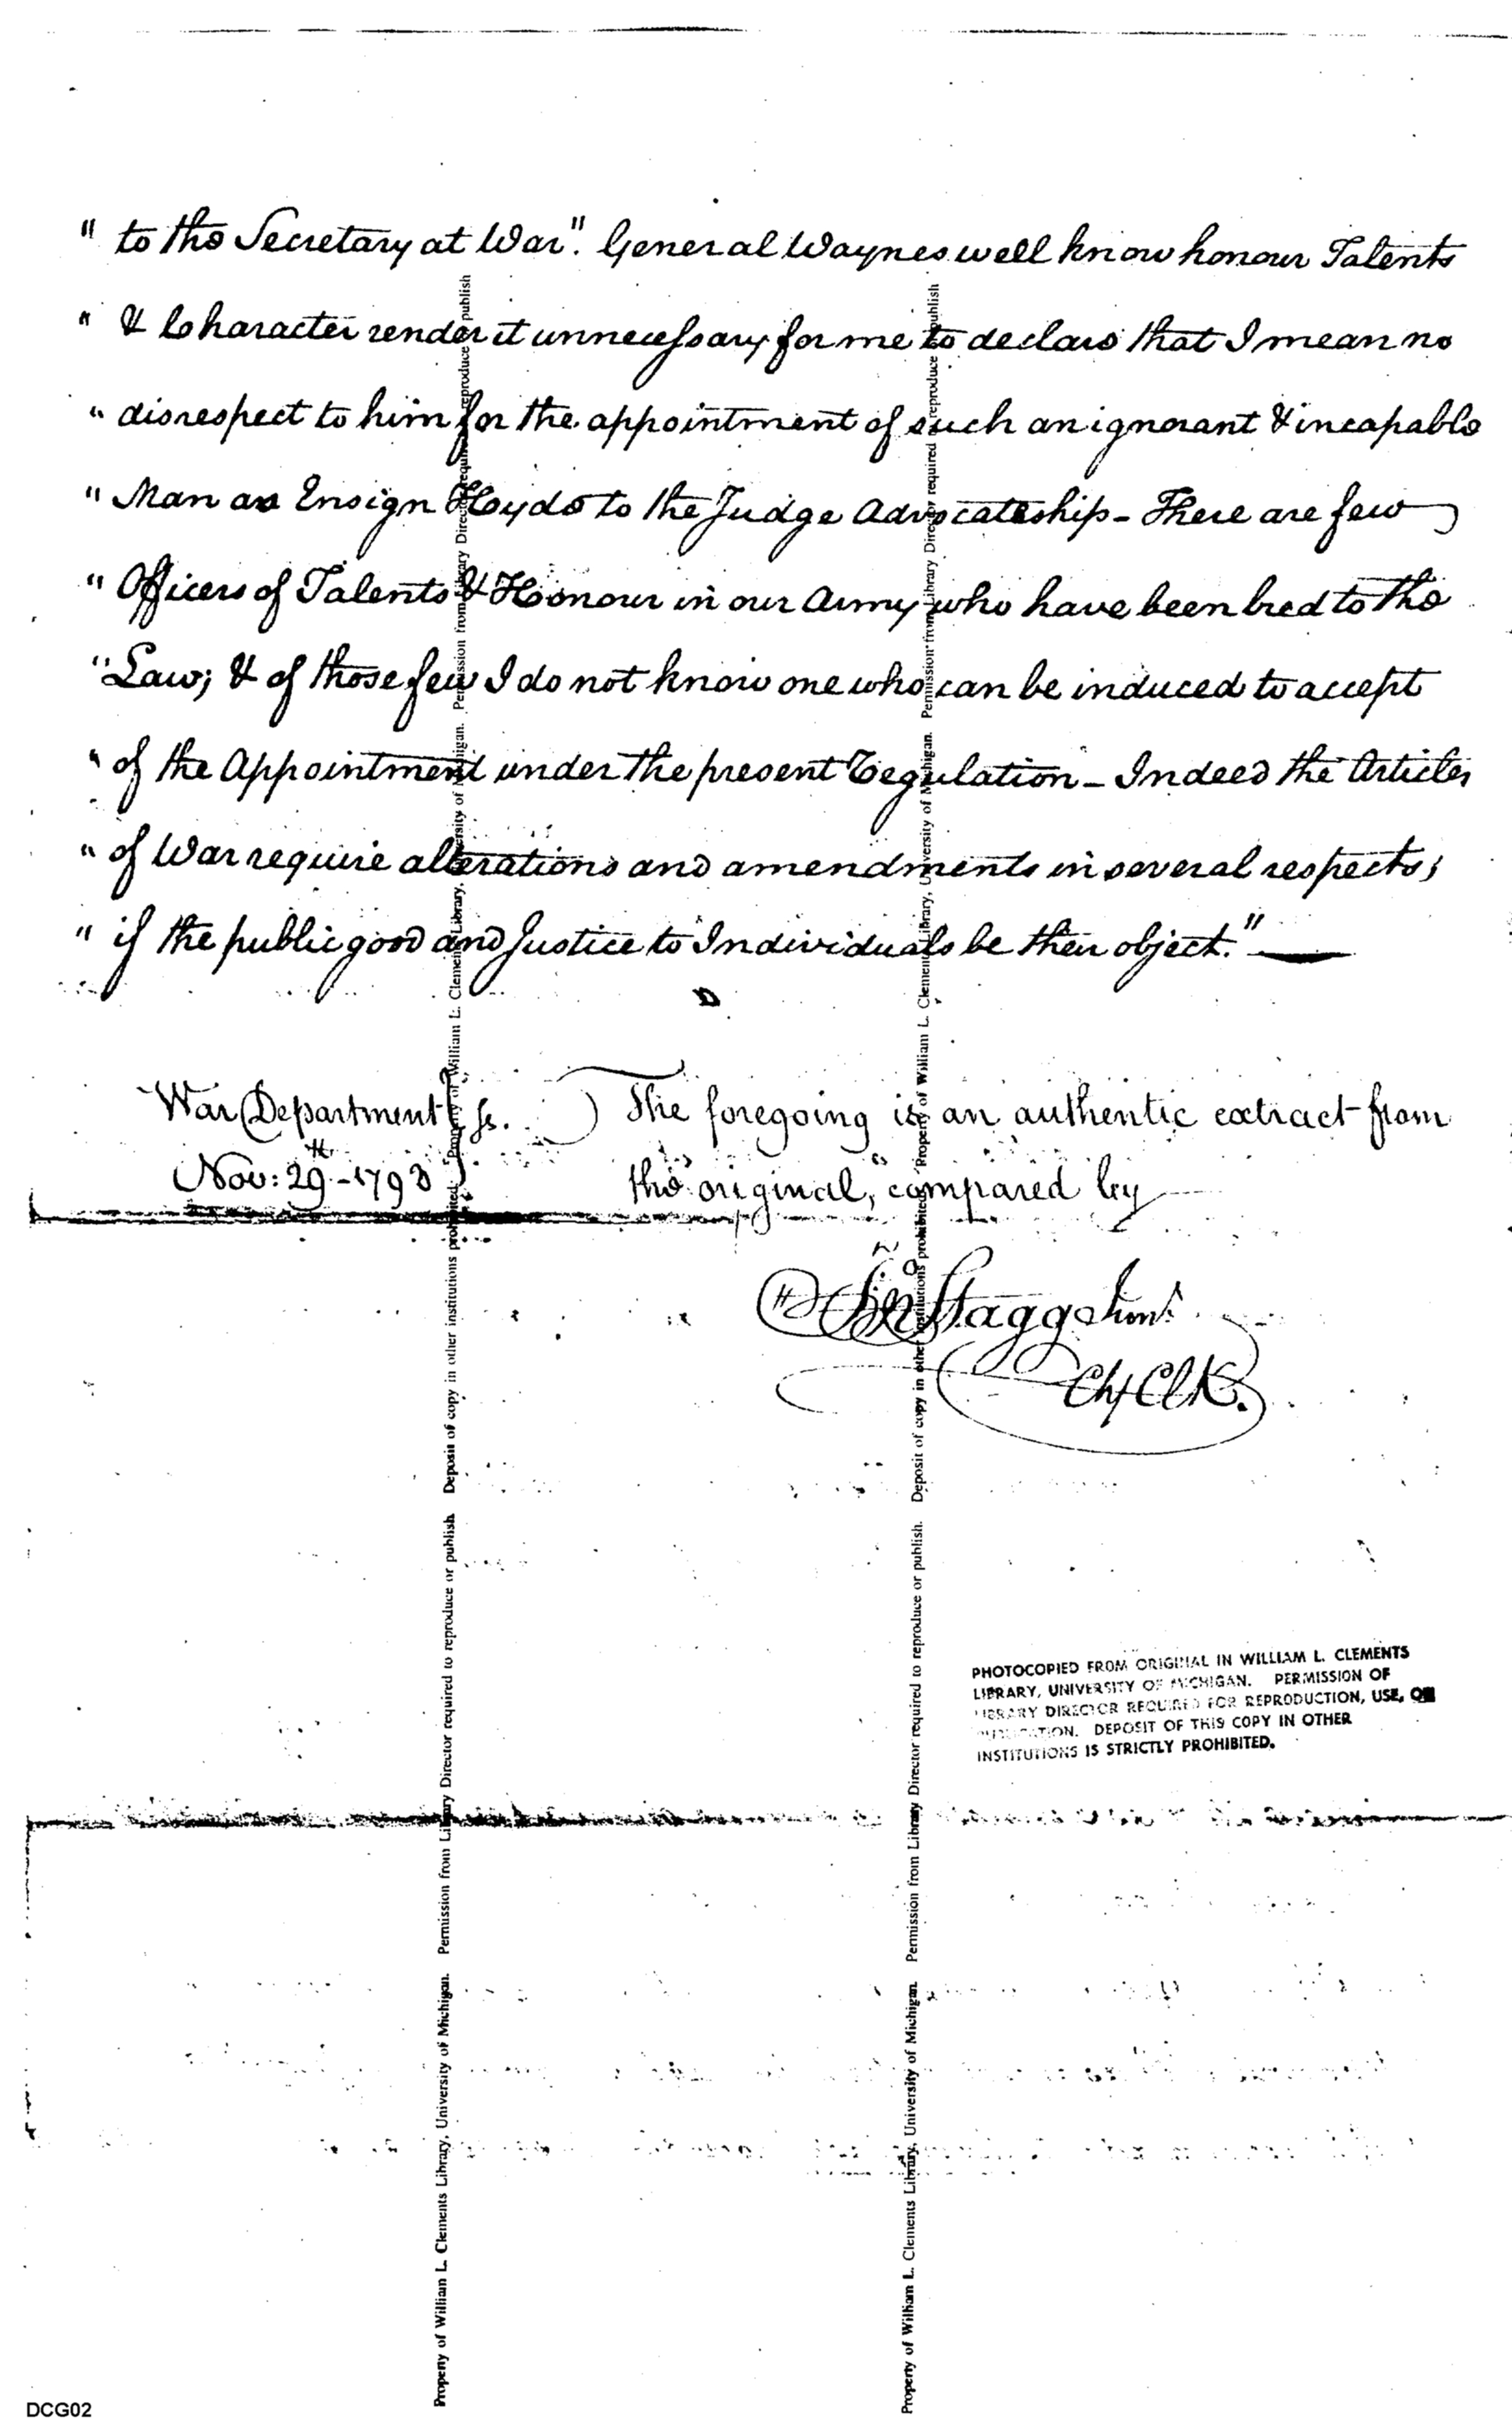 " to the Secretary at War". General Waynes well know honour Talents
" & Character render it unnecessary for me to declare that I mean no
" disrespect to him for the appointment of such an ignorant & incapable
" Man as Ensign Hyde to the Judge Advocateship - There are few
" Officers of Talents & Honour in our Army who have been bred to the
" Law; & of those few I do not know one who can be induced to accept
" of the Appointment under the present Regulation - Indeed the Articles
" of War require alterations and amendments in several respects;
" if the public good and Justice to Individuals be their object." —
War Department ss.
Nov: 29th - 1793
The foregoing is an authentic extract from
the original, compared by
Jno Stagg Junr
Chf Clk.
PHOTOCOPIED FROM ORIGINAL IN WILLIAM L. CLEMENTS
LIBRARY, UNIVERSITY OF MICHIGAN. PERMISSION OF
LIBRARY DIRECTOR REQUIRED FOR REPRODUCTION, USE, OR
PUBLICATION. DEPOSIT OF THIS COPY IN OTHER
INSTITUTIONS IS STRICTLY PROHIBITED.
Property of William L. Clements Library, University of Michigan. Permission from Library Director required to reproduce or publish. Deposit of copy in other institutions prohibited. Property of William L. Clements Library, University of Michigan. Permission from Library Director required to reproduce or publish
Property of William L. Clements Library, University of Michigan. Permission from Library Director required to reproduce or publish. Deposit of copy in other institutions prohibited. Property of William L. Clements Library, University of Michigan. Permission from Library Director required to reproduce or publish
DCG02